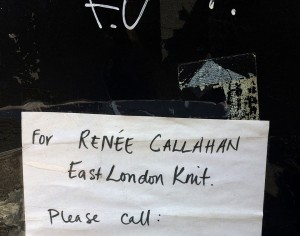 F.U
For RENÉE CALLAHAN
East London Knit.
Please call: